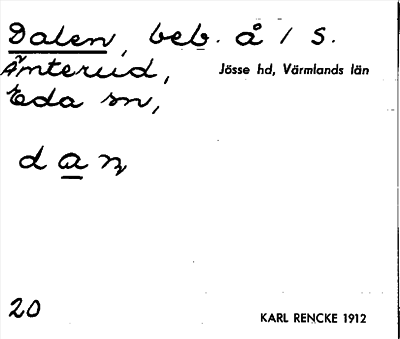 Dalen, beb. å / S.
Ämterud, Jösse hd, Värmlands län
Eda sn,
dan
20 KARL RENCKE 1912